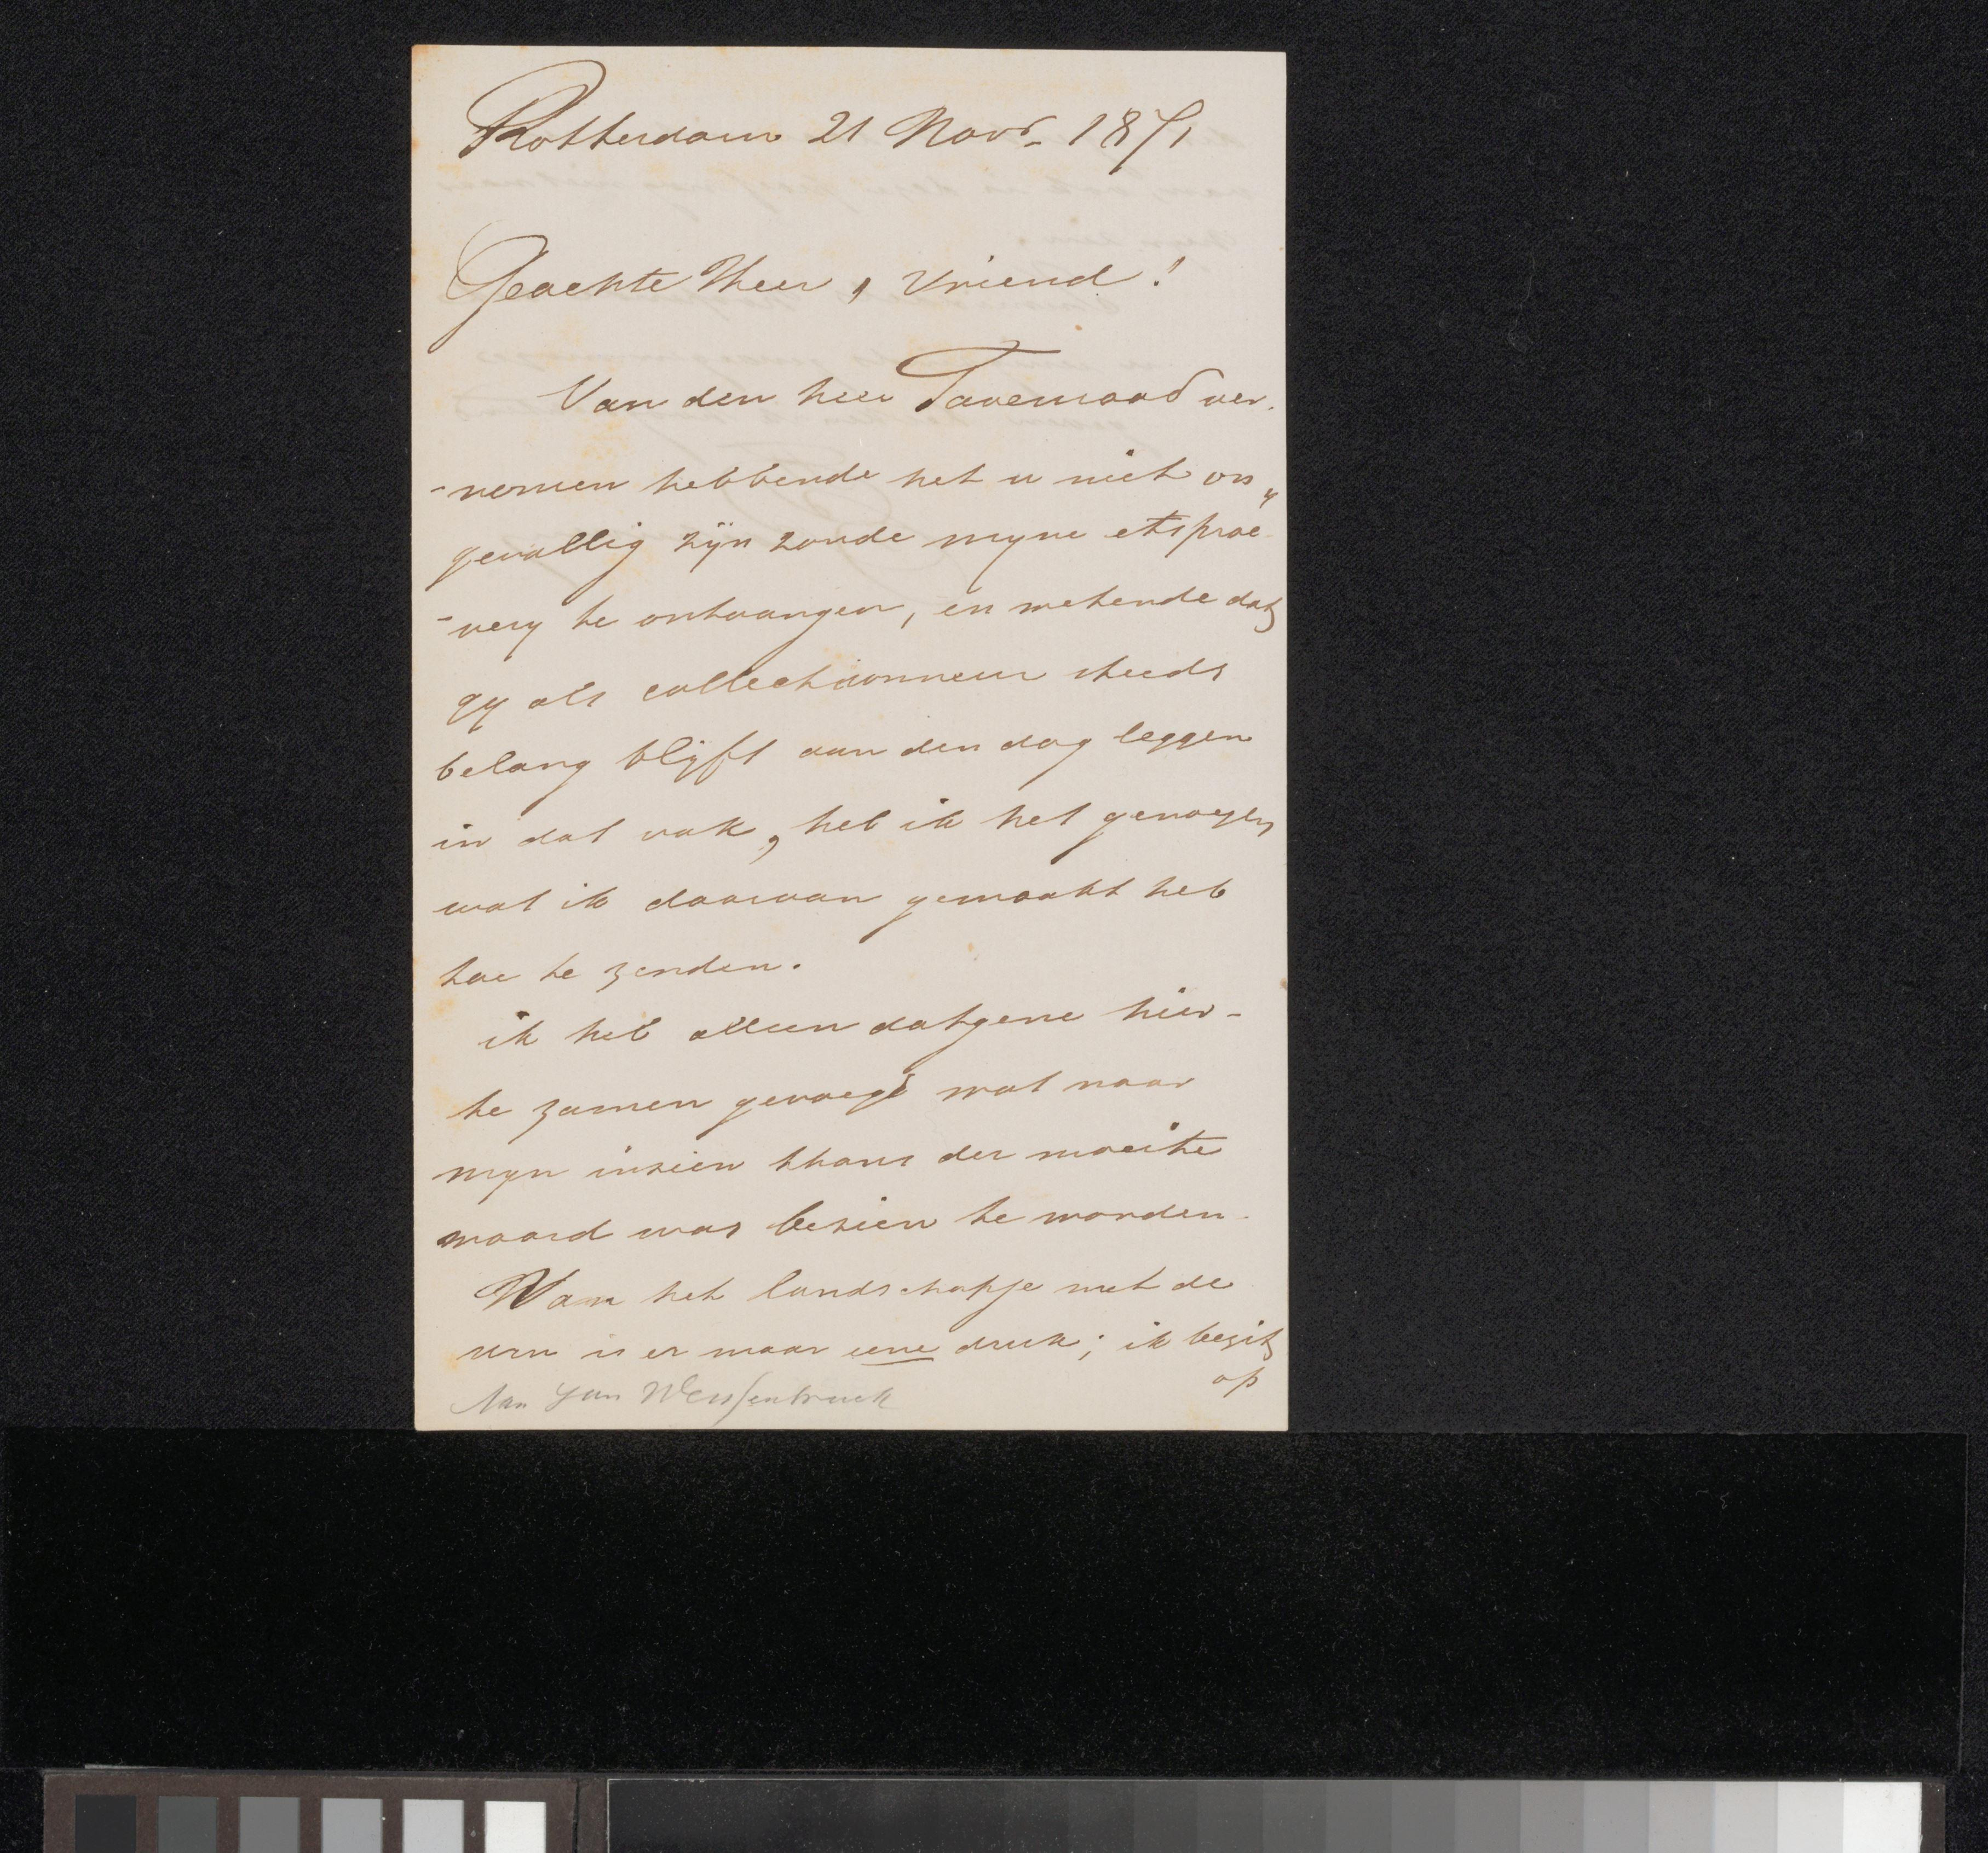 Rotterdam 21 Novr. 1871
Geachte Heer, Vriend!
Van den heer Tavenraad ver.
-nomen hebbende het u niet on„
gevallig zijn zoude myne etsproe
-very te ontvangen, en wetende dat
gy als collectionneur steeds
belang blyft aan den dag leggen
in dat vak, heb ik het genoegen
wat ik daarvan gemaakt heb
toe te zenden.
ik heb alleen datgene hier-
te zamen gevoegd wat naar
myn inzien thans der moeite
waard was bezien te worden.
Van het landschapje met de
urn is er maar eene druk; ik bezit
op
Aan Jan Weissenbruch